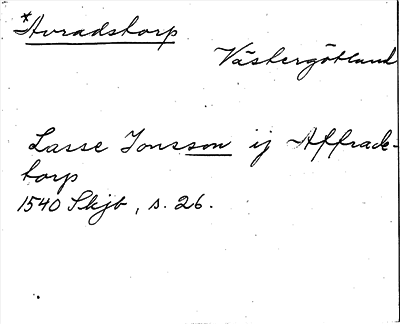 *Avradstorp
Västergötland
Lasse Jonsson ij Affrade-
torp
1540 Skjb, s. 26.